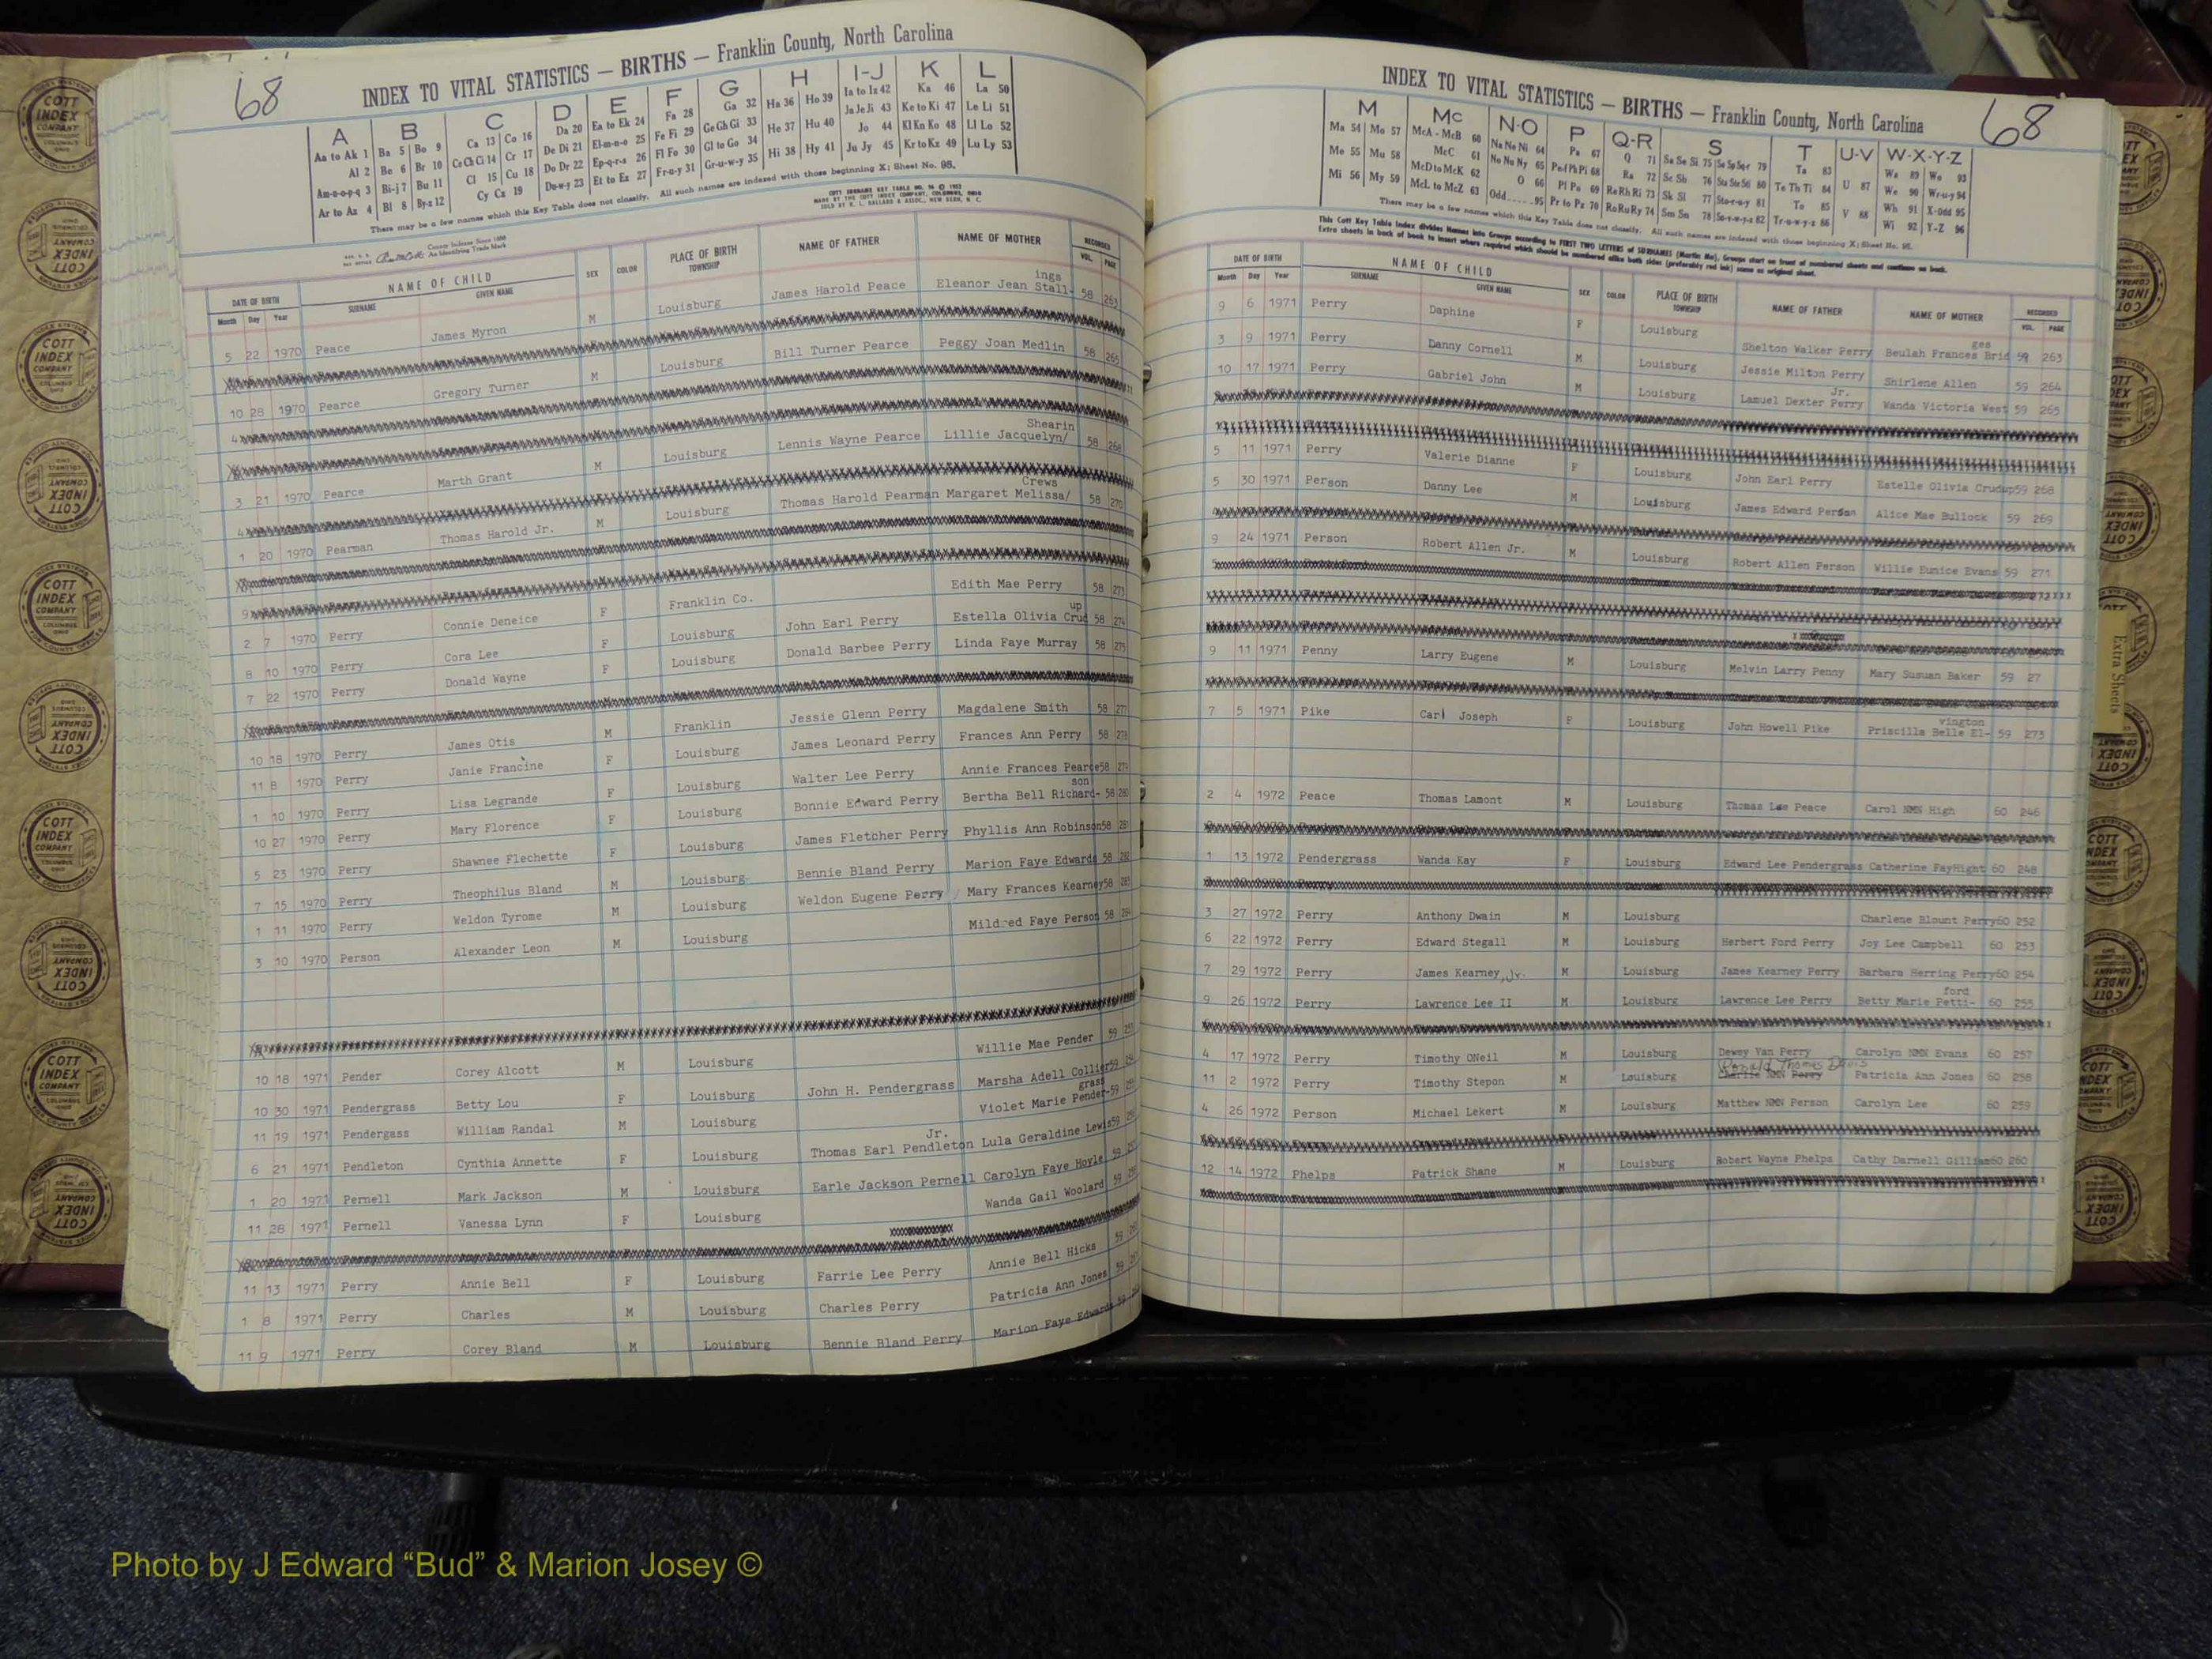 68
INDEX TO VITAL STATISTICS — BIRTHS — Franklin County, North Carolina
A B C D E F G H I-J K L
Aa to Ak 1 Ba 5 Bo 9 Ca 13 Co 16 Da 20 Ea to Ek 24 Fa 28 Ga 32 Ha 36 Ho 39 Ia to Iz 42 Ka 46 La 50
Al 2 Be 6 Br 10 Ce Ch Ci 14 Cr 17 De Di 21 El-m-n-o 25 Fe Fi 29 Ge Gh Gi 33 He 37 Hu 40 Ja Je Ji 43 Ke to Ki 47 Le Li 51
Am-n-o-p-q 3 Bi-j 7 Bu 11 Cl 15 Cu 18 Do Dr 22 Ep-q-r-s 26 Fl Fo 30 Gl to Go 34 Hi 38 Hy 41 Jo 44 Kl Kn Ko 48 Ll Lo 52
Ar to Az 4 Bl 8 By-z 12 Cy Cz 19 Du-w-y 23 Et to Ez 27 Fr-u-y 31 Gr-u-w-y 35 Ju Jy 45 Kr to Kz 49 Lu Ly 53
There may be a few names which this Key Table does not classify. All such names are indexed with those beginning X; Sheet No. 95.
DATE OF BIRTH NAME OF CHILD SEX COLOR PLACE OF BIRTH NAME OF FATHER NAME OF MOTHER RECORDED
Month Day Year SURNAME GIVEN NAME TOWNSHIP VOL. PAGE
5 22 1970 Peace James Myron M Louisburg James Harold Peace Eleanor Jean Stall-ings 58 263
10 28 1970 Pearce Gregory Turner M Louisburg Bill Turner Pearce Peggy Joan Medlin 58 265
3 21 1970 Pearce Marth Grant M Louisburg Lennis Wayne Pearce Lillie Jacquelyn/ Shearin 58 268
1 20 1970 Pearman Thomas Harold Jr. M Louisburg Thomas Harold Pearman Margaret Melissa/ Crews 58 270
2 7 1970 Perry Connie Deneice F Franklin Co. Edith Mae Perry 58 273
8 10 1970 Perry Cora Lee F Louisburg John Earl Perry Estella Olivia Crudup 58 274
7 22 1970 Perry Donald Wayne F Louisburg Donald Barbee Perry Linda Faye Murray 58 275
10 18 1970 Perry James Otis M Franklin Jessie Glenn Perry Magdalene Smith 58 277
11 8 1970 Perry Janie Francine F Louisburg James Leonard Perry Frances Ann Perry 58 278
1 10 1970 Perry Lisa Legrande F Louisburg Walter Lee Perry Annie Frances Pearce 58 279
10 27 1970 Perry Mary Florence F Louisburg Bonnie Edward Perry Bertha Bell Richard-son 58 280
5 23 1970 Perry Shawnee Flechette F Louisburg James Fletcher Perry Phyllis Ann Robinson 58 281
7 15 1970 Perry Theophilus Bland M Louisburg Bennie Bland Perry Marion Faye Edwards 58 282
1 11 1970 Perry Weldon Tyrome M Louisburg Weldon Eugene Perry Mary Frances Kearney 58 283
3 10 1970 Person Alexander Leon M Louisburg Mildred Faye Person 58 284
10 18 1971 Pender Corey Alcott M Louisburg Willie Mae Pender 59
10 30 1971 Pendergrass Betty Lou F Louisburg John H. Pendergrass Marsha Adell Collier 59
11 19 1971 Pendergass William Randal M Louisburg Violet Marie Pender-grass 59
6 21 1971 Pendleton Cynthia Annette F Louisburg Thomas Earl Pendleton Jr. Lula Geraldine Lewis 59
1 20 1971 Pernell Mark Jackson M Louisburg Earle Jackson Pernell Carolyn Faye Hoyle 59
11 28 1971 Pernell Vanessa Lynn F Louisburg Wanda Gail Woolard 59
11 13 1971 Perry Annie Bell F Louisburg Farrie Lee Perry Annie Bell Hicks 59
1 8 1971 Perry Charles M Louisburg Charles Perry Patricia Ann Jones 59
11 9 1971 Perry Corey Bland M Louisburg Bennie Bland Perry Marion Faye Edwards 59
68
INDEX TO VITAL STATISTICS — BIRTHS — Franklin County, North Carolina
M Mc N-O P Q-R S T U-V W-X-Y-Z
Ma 54 Mo 57 McA - McB 60 Na Ne Ni 64 Pa 67 Q 71 Sa Se Si 75 So Sp Sq-r 79 Ta 83 Wa 89 Wo 93
Me 55 Mu 58 McC 61 No Nu Ny 65 Pe-f Ph Pi 68 Ra 72 Sc Sh 76 Sta Ste Sti 80 Te Th Ti 84 U 87 We 90 Wr-u-y 94
Mi 56 My 59 McD to McK 62 O 66 Pl Po 69 Re Rh Ri 73 Sk Sl 77 Sto-r-u-y 81 To 85 Wh 91 X-Odd 95
McL to McZ 63 Odd 95 Pr to Pz 70 Ro Ru Ry 74 Sm Sn 78 Su-v-w-y-z 82 Tr-u-w-y-z 86 V 88 Wi 92 Y-Z 96
There may be a few names which this Key Table does not classify. All such names are indexed with those beginning X; Sheet No. 95.
This Cott Key Table Index divides Names into Groups according to FIRST TWO LETTERS of SURNAMES (Martin Ma). Groups start on front of numbered sheets and continue on back.
Extra sheets in back of book to insert where required which should be numbered alike both sides (preferably red ink) same as original sheet.
DATE OF BIRTH NAME OF CHILD SEX COLOR PLACE OF BIRTH NAME OF FATHER NAME OF MOTHER RECORDED
Month Day Year SURNAME GIVEN NAME TOWNSHIP VOL. PAGE
9 6 1971 Perry Daphine F Louisburg Shelton Walker Perry Beulah Frances Bridges 59 263
3 9 1971 Perry Danny Cornell M Louisburg Jessie Milton Perry Shirlene Allen 59 264
10 17 1971 Perry Gabriel John M Louisburg Lamuel Dexter Perry Jr. Wanda Victoria West 59 265
5 11 1971 Perry Valerie Dianne F Louisburg John Earl Perry Estelle Olivia Crudup 59 268
5 30 1971 Person Danny Lee M Louisburg James Edward Person Alice Mae Bullock 59 269
9 24 1971 Person Robert Allen Jr. M Louisburg Robert Allen Person Willie Eunice Evans 59 271
9 11 1971 Penny Larry Eugene M Louisburg Melvin Larry Penny Mary Susuan Baker 59 27
7 5 1971 Pike Carl Joseph F Louisburg John Howell Pike Priscilla Belle El-vington 59 273
2 4 1972 Peace Thomas Lamont M Louisburg Thomas Lee Peace Carol NMN High 60 246
1 13 1972 Pendergrass Wanda Kay F Louisburg Edward Lee Pendergrass Catherine FayHight 60 248
3 27 1972 Perry Anthony Dwain M Louisburg Charlene Blount Perry 60 252
6 22 1972 Perry Edward Stegall M Louisburg Herbert Ford Perry Joy Lee Campbell 60 253
7 29 1972 Perry James Kearney, Jr. M Louisburg James Kearney Perry Barbara Herring Perry 60 254
9 26 1972 Perry Lawrence Lee II M Louisburg Lawrence Lee Perry Betty Marie Petti-ford 60 255
4 17 1972 Perry Timothy ONeil M Louisburg Dewey Van Perry Carolyn NMN Evans 60 257
Ronald Thomas Davis
11 2 1972 Perry Timothy Stepon M Louisburg Charlie NMN Perry Patricia Ann Jones 60 258
4 26 1972 Person Michael Lekert M Louisburg Matthew NMN Person Carolyn Lee 60 259
12 14 1972 Phelps Patrick Shane M Louisburg Robert Wayne Phelps Cathy Darnell Gilliam 60 260
Extra Sheets
COTT INDEX COMPANY COLUMBUS OHIO
Photo by J Edward “Bud” & Marion Josey ©